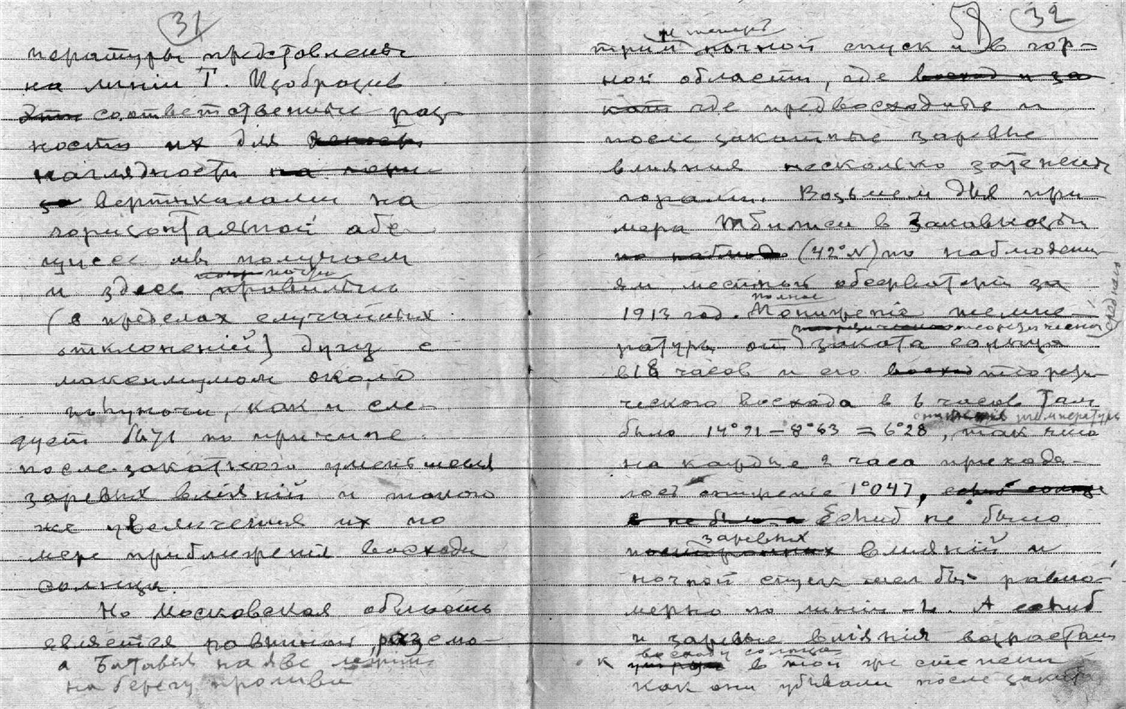 31
пературы представлены
на линіи Т. Изобразив
соответственные раз-
ности их для
наглядности
вертикалами на
горизонтальной абс-
циссе мы получаем
почти
и здесь правильно
(в пределах случайных
отклоненій) дугу с
максимумом около
полуночи, как и сле-
дует быть по причине
после-закатного уменьшения
заревых вліяній и такого
же увеличения их по
мере приближенія восхода
солнца.
Но Московская область
является равниной,
а Батавия на Яве лежит
на берегу пролива
58 32
теперь
ночной спуск и в гор-
ной области, где восход и за-
кат где предвосходные и
после закатные заревые
влияния несколько затенены
горами. Возьмем для при-
мера Тбилиси в Закавказьи
(42°N) по наблюдени-
ям местной обсерваторіи за
полное
1913 год. Пониженіе темпе-
среднего
теоретическаго
ратуры от заката солнца
в 18 часов и его теорети-
ческого восхода в 6 часов там
температуры
было 14°91 – 8°63 = 6°28, так что
на каждые 2 часа приходи-
лось пониженіе 1°047,
Еслиб не было
заревых
вліяній и
ночной спуск шел бы равно-
мерно по линіи – L. А еслиб
и заревые вліянія возрастали
восходу солнца
к в той же степени
как они убывали после заката